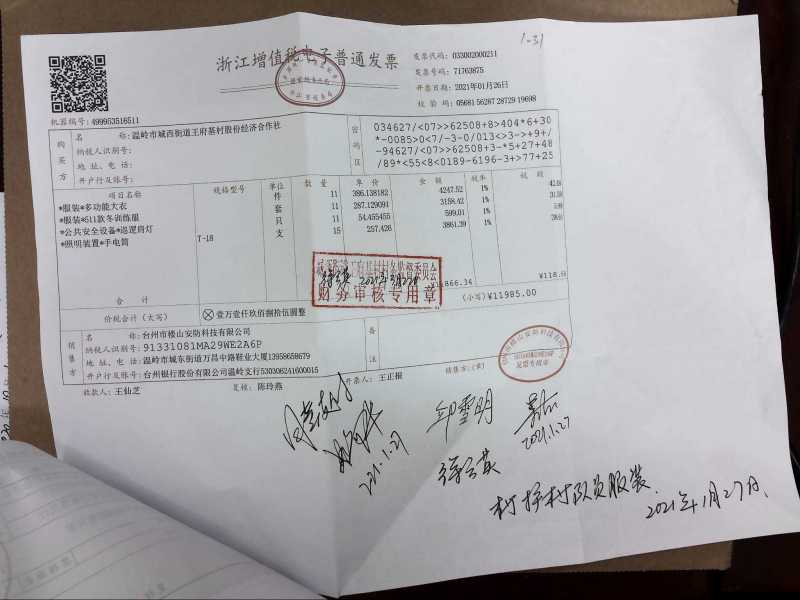 1-31
浙江增值税电子普通发票
发票代码: 033002000211
发票号码: 71763875
开票日期: 2021年01月26日
校 验 码: 05681 56287 28729 19698
机器编号: 499953516511
购买方
名 称: 温岭市城西街道王府基村股份经济合作社
纳税人识别号:
地 址、电 话:
开户行及账号:
密码区
034627/<07>>62508+8>404*6+30
*-0085>0<7/-3-0/013<>3->+9+/
-94627/<07>>62508+3-*5+27+48
/89*<55<8<0189-6196-3+>77+25
项目名称 规格型号 单位 数 量 单 价 金 额 税率 税 额
*服装*多功能大衣 件 11 386.138182 4247.52 1%
*服装*511款冬训练服 套 11 287.129091 3158.42 1% 31.58
*公共安全设备*巡逻肩灯 只 11 54.455455 599.01 1% 5.99
*照明装置*手电筒 T-18 支 15 257.426 3861.39 1%
财务审核专用章
合 计 ¥11866.34
价税合计(大写) ⊗壹万壹仟玖佰捌拾伍圆整 (小写)¥11985.00
销售方
名 称: 台州市楼山安防科技有限公司
纳税人识别号: 91331081MA29WE2A6P
地 址、电 话: 温岭市城东街道万昌中路鞋业大厦13958658679
开户行及账号: 台州银行股份有限公司温岭支行530306241600015
备注
收款人: 王仙芝 复核: 陈玲燕 开票人: 王正根 销售方:(章)
发票专用章
邱雪明
2021.1.27
徐云英
2021年1月27日